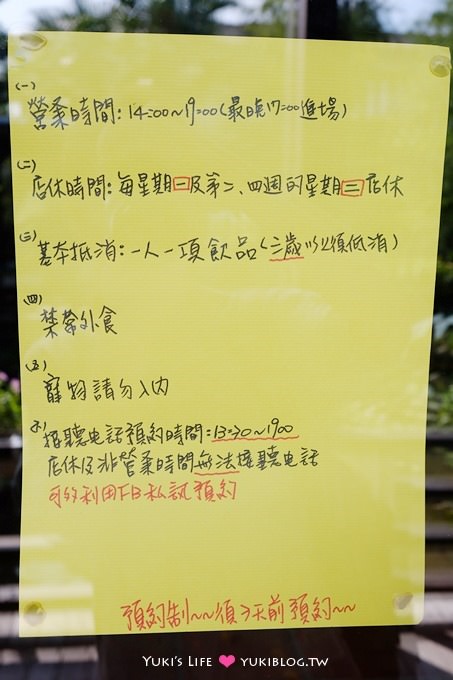 (一)
營業時間：14:00~19:00(最晚17:00進場)
(二)
店休時間：每星期一及第二、四週的星期三店休
(三)
基本抵消：一人一項飲品(三歲以上須低消)
(四)
禁帶外食
(五)
寵物請勿入內
(六)
接聽电話預約時間：13:30~19:00
店休及非營業時間無法接聽电話
可以利用FB私訊預約
預約制~~須3天前預約~~
YUKI'S LIFE YUKIBLOG.TW